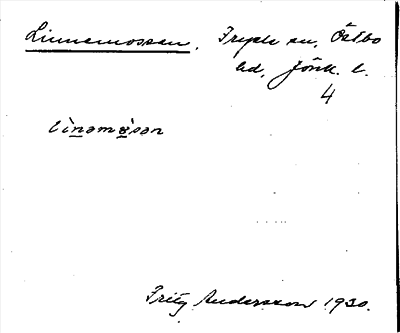 Linnemossen, Fryele sn, Östbo
hd, Jönk. l.
4
lìnəmòsən
Fritz Andersson 1930.